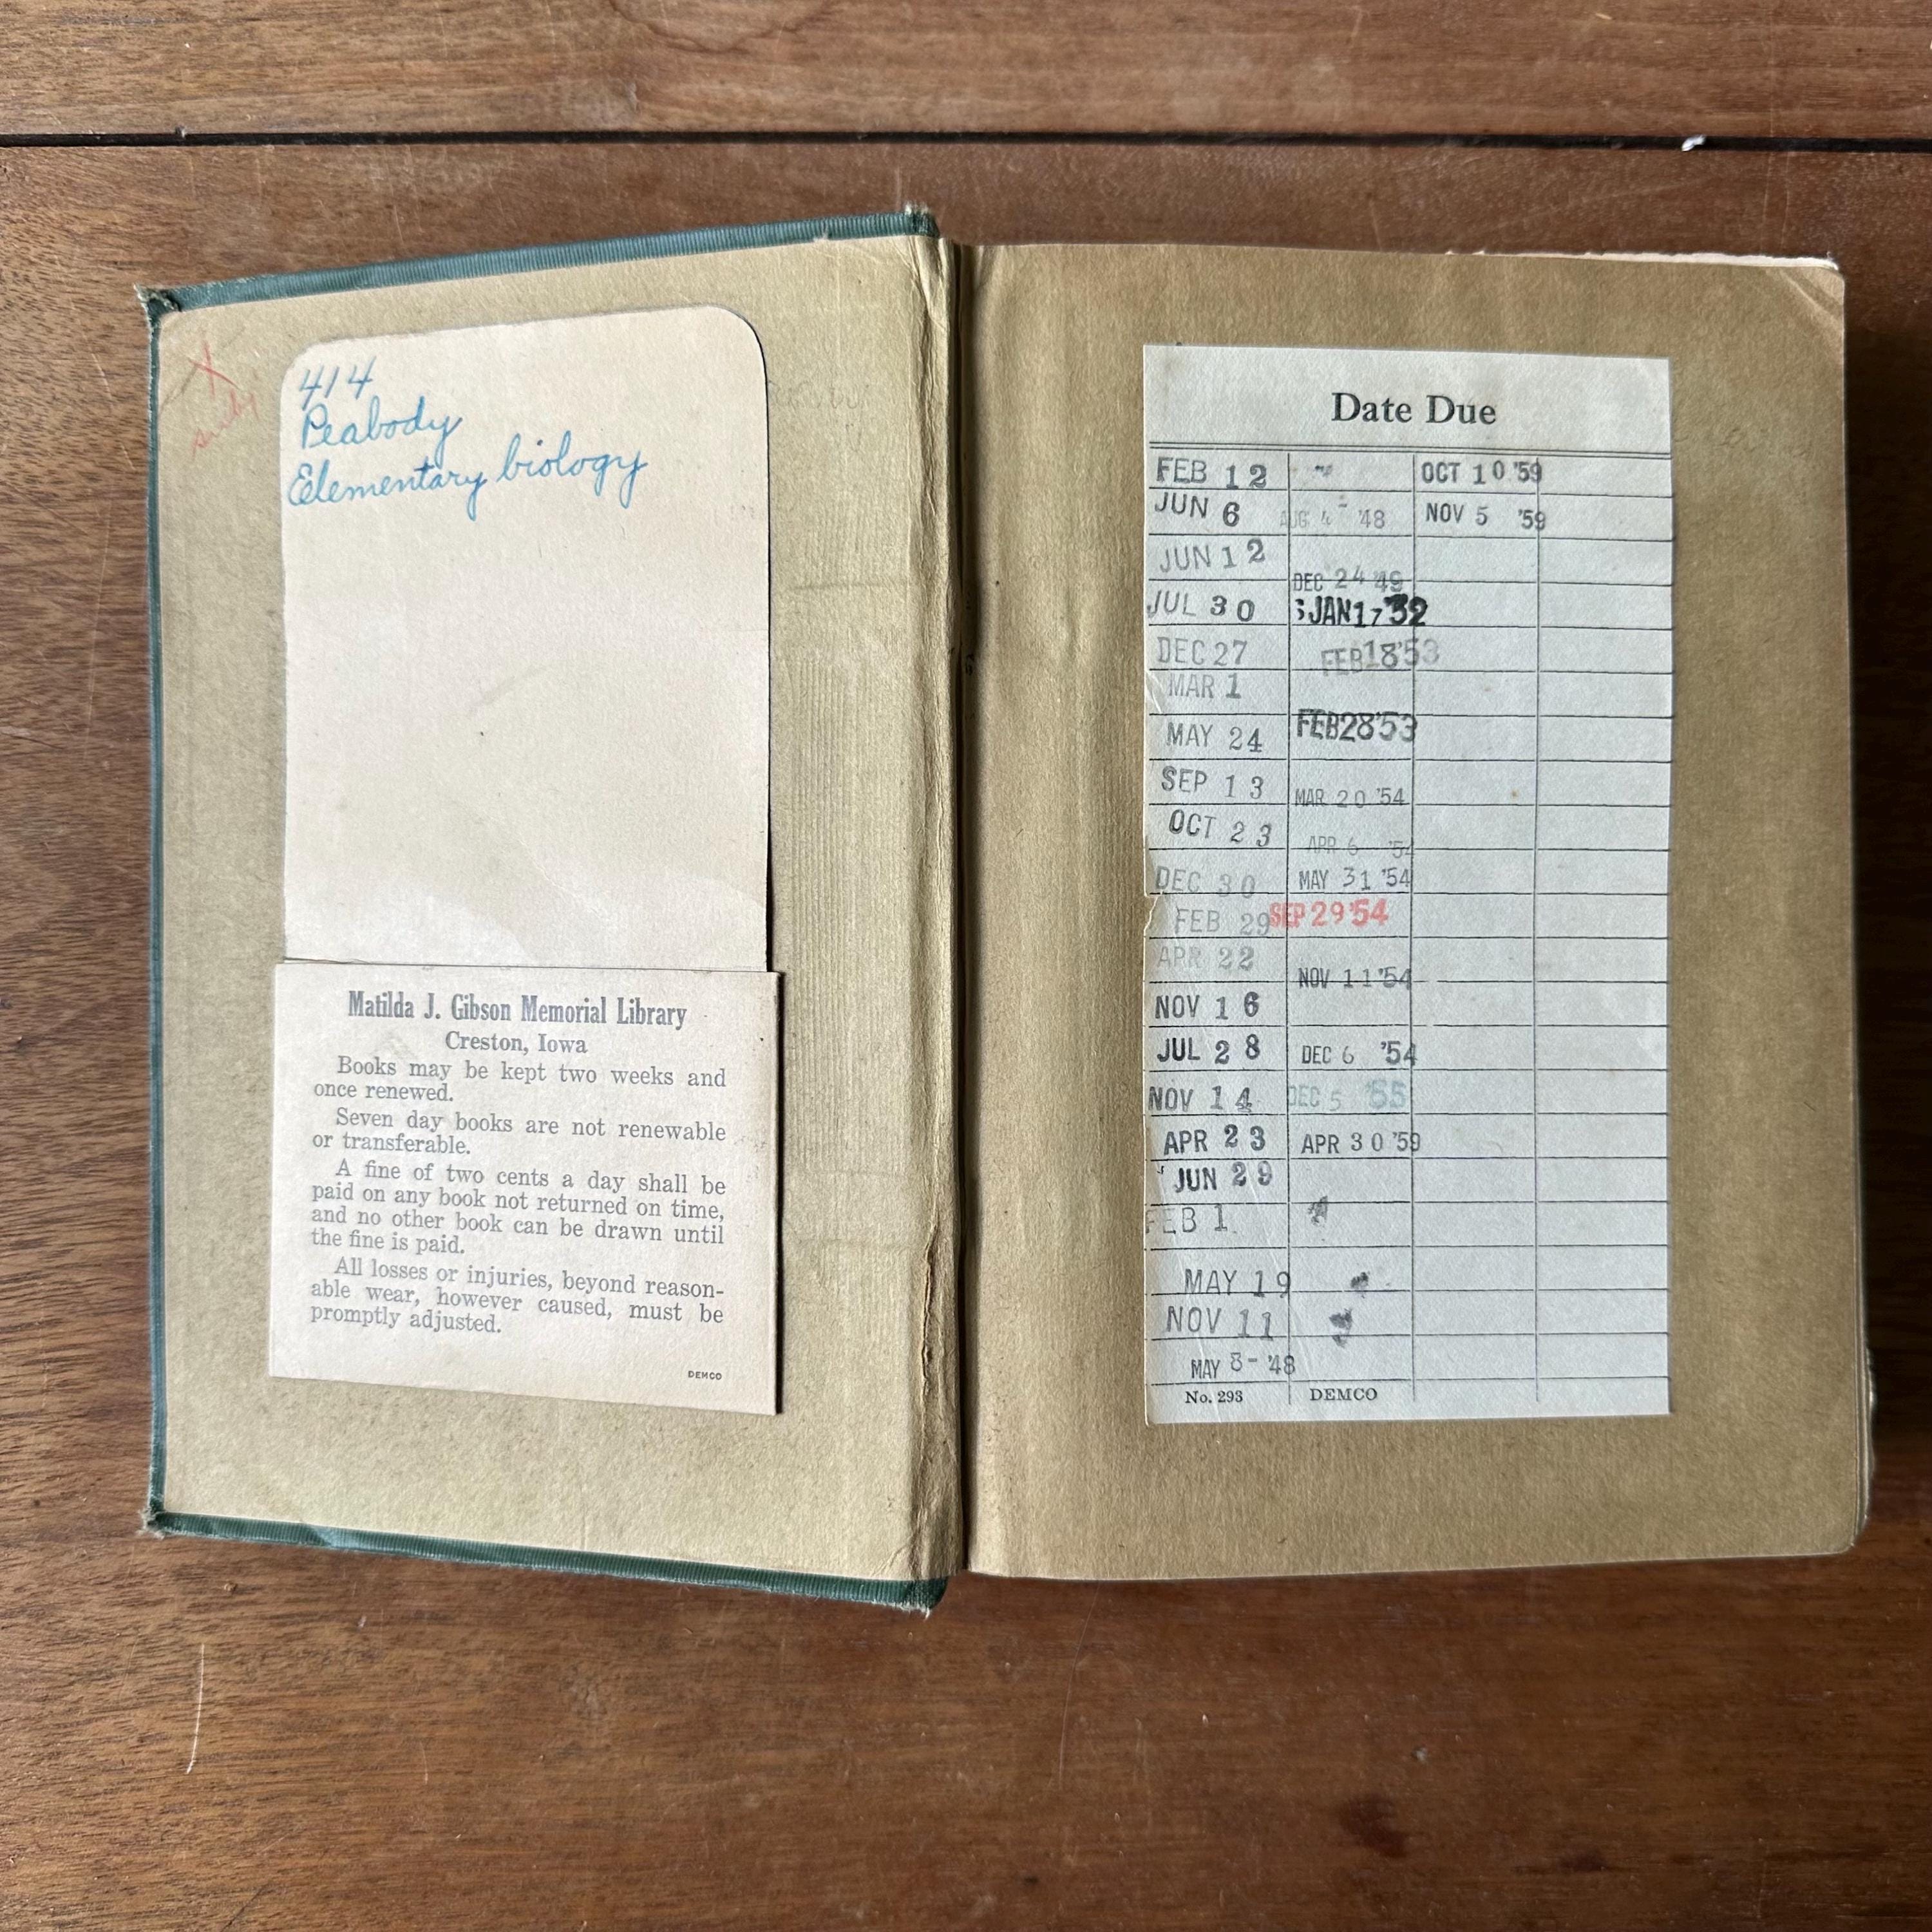 414
Peabody
Elementary biology
Matilda J. Gibson Memorial Library
Creston, Iowa
Books may be kept two weeks and
once renewed.
Seven day books are not renewable
or transferable.
A fine of two cents a day shall be
paid on any book not returned on time,
and no other book can be drawn until
the fine is paid.
All losses or injuries, beyond reason-
able wear, however caused, must be
promptly adjusted.
DEMCO
Date Due
FEB 12
JUN 6
JUN 12
JUL 30
DEC 27
MAR 1
MAY 24
SEP 13
OCT 23
DEC 30
FEB 29
APR 22
NOV 16
JUL 28
NOV 14
APR 23
JUN 29
FEB 1
MAY 19
NOV 11
MAY 8- '48
AUG 4- '48
DEC 24 '49
JAN 17
FEB 18 '53
FEB 28 '53
MAR 20 '54
APR 6 '54
MAY 31 '54
SEP 29 '54
NOV 11 '54
DEC 6 '54
DEC 5 '55
APR 30 '59
OCT 10 '59
NOV 5 '59
No. 293
DEMCO